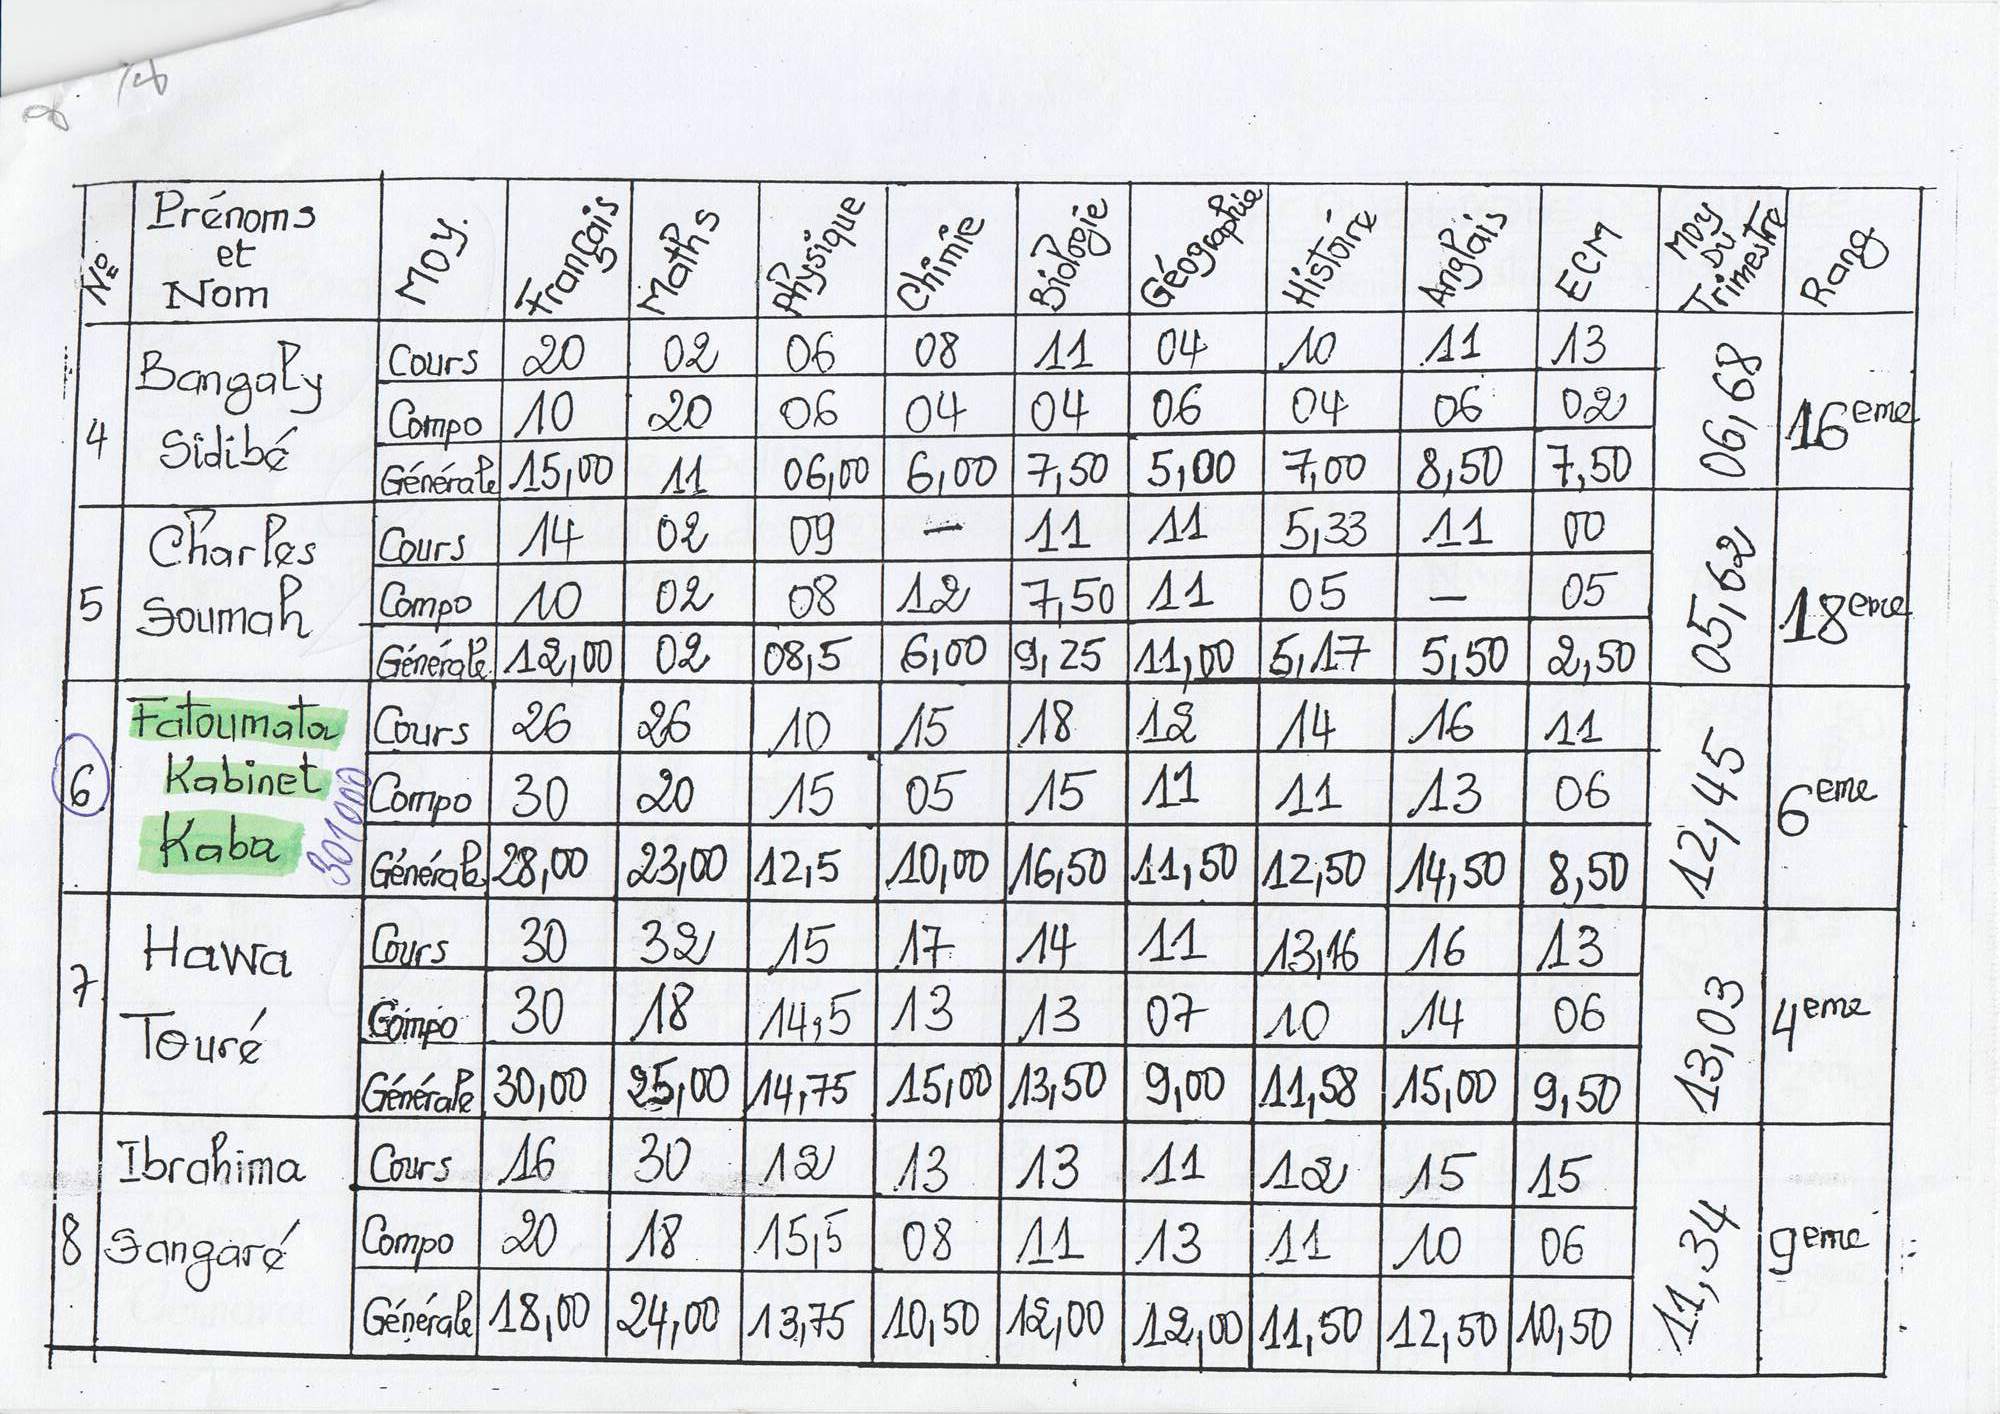 N° Prénoms et Nom Moy. Français Maths Physique Chimie Biologie Géographie Histoire Anglais ECM Moy Du Trimestre Rang
4 Bangaly Sidibé 06,68 16eme
Cours 20 02 06 08 11 04 10 11 13
Compo 10 20 06 04 04 06 04 06 02
Générale 15,00 11 06,00 6,00 7,50 5,00 7,00 8,50 7,50
5 Charles Soumah 05,62 18eme
Cours 14 02 09 — 11 11 5,33 11 00
Compo 10 02 08 12 7,50 11 05 — 05
Générale 12,00 02 08,5 6,00 9,25 11,00 5,17 5,50 2,50
6 Fatoumata Kabinet Kaba 301000 12,45 6eme
Cours 26 26 10 15 18 12 14 16 11
Compo 30 20 15 05 15 11 11 13 06
Générale 28,00 23,00 12,5 10,00 16,50 11,50 12,50 14,50 8,50
7 Hawa Touré 13,03 4eme
Cours 30 32 15 17 14 11 13,16 16 13
Compo 30 18 14,5 13 13 07 10 14 06
Générale 30,00 25,00 14,75 15,00 13,50 9,00 11,58 15,00 9,50
8 Ibrahima Sangaré 11,34 9eme
Cours 16 30 12 13 13 11 12 15 15
Compo 20 18 15,5 08 11 13 11 10 06
Générale 18,00 24,00 13,75 10,50 12,00 12,00 11,50 12,50 10,50